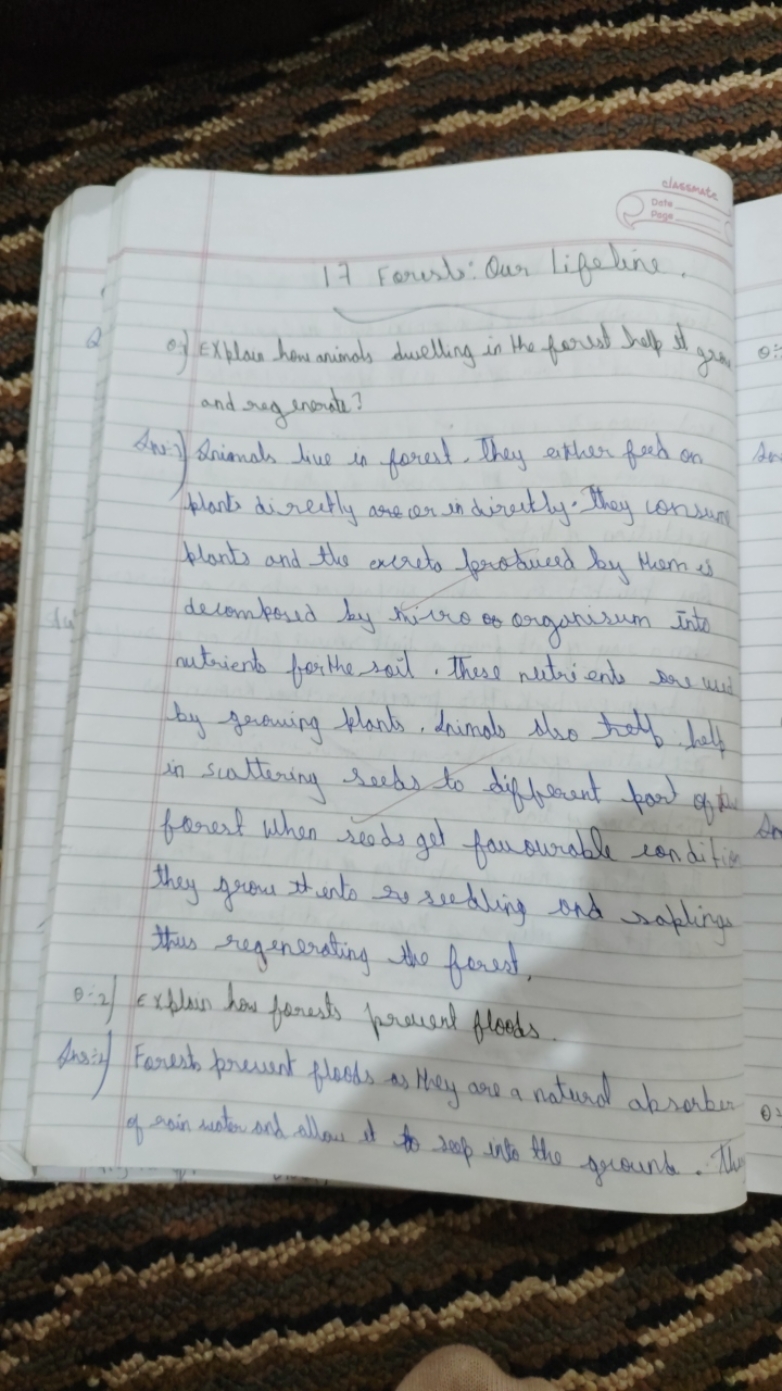 classmate
Date
Page
17 Forests: Our Lifeline.
Q:1) Explain how animals dwelling in the forest help it grow
and regenerate?
Ans:1) Animals live in forest. They either feed on
plants directly or indirectly. They consum
plants and the excreta produced by them is
decomposed by micro organisum into
nutrients for the soil. These nutrients are used
by growing plants. Animals also help
in scattering seeds to different part of the
forest when seeds get favourable conditio
they grow into seedling and saplings
thus regenerating the forest.
Q:2) Explain how forests prevent floods.
Ans:2) Forests prevent floods as they are a natural absorber
of rain water and allow it to seep into the ground.